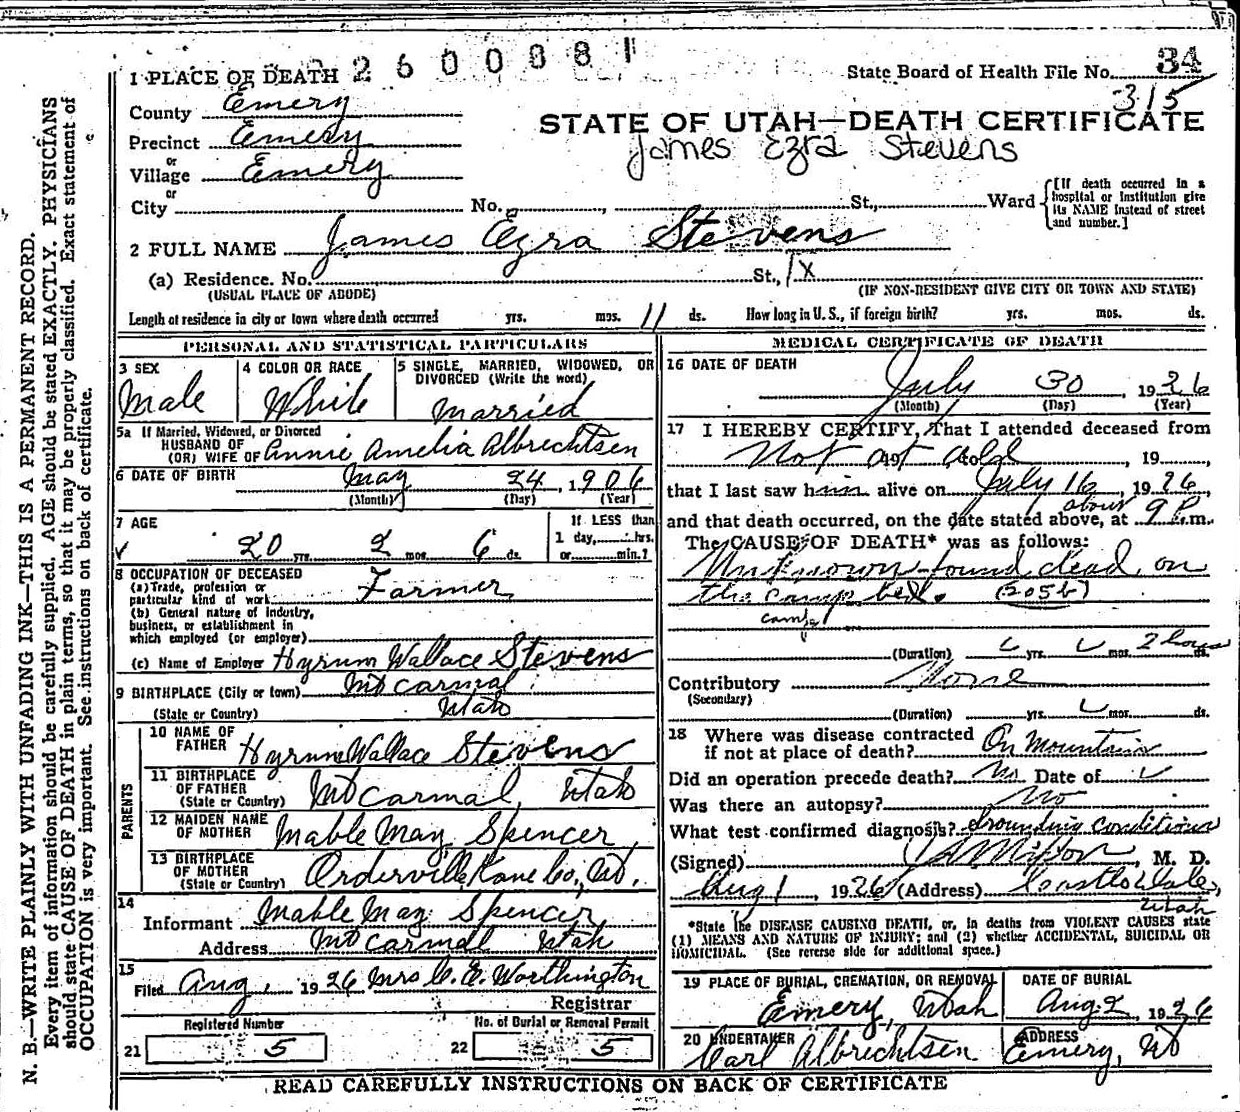 2600081
1 PLACE OF DEATH
State Board of Health File No. 34
315
County Emery
STATE OF UTAH—DEATH CERTIFICATE
Precinct Emery
James Ezra Stevens
or
Village Emery
or
City No. , St., Ward
[If death occurred in a
hospital or institution give
its NAME instead of street
and number.]
2 FULL NAME James Ezra Stevens
(a) Residence. No. St., 1x
(USUAL PLACE OF ABODE) (IF NON-RESIDENT GIVE CITY OR TOWN AND STATE)
Length of residence in city or town where death occurred yrs. mos. 11 ds. How long in U. S., if foreign birth? yrs. mos. ds.
PERSONAL AND STATISTICAL PARTICULARS
3 SEX Male
4 COLOR OR RACE White
5 SINGLE, MARRIED, WIDOWED, OR
DIVORCED (Write the word)
Married
5a If Married, Widowed, or Divorced
HUSBAND OF
(OR) WIFE OF Annie Amelia Albrechtsen
6 DATE OF BIRTH May 24, 1906
(Month) (Day) (Year)
7 AGE 20 yrs. 2 mos. 6 ds.
If LESS than
1 day, hrs.
or min.?
8 OCCUPATION OF DECEASED
(a) Trade, profession or
particular kind of work Farmer
(b) General nature of industry,
business, or establishment in
which employed (or employer)
(c) Name of Employer Hyrum Wallace Stevens
9 BIRTHPLACE (City or town) Mt Carmal
(State or Country) Utah
PARENTS
10 NAME OF
FATHER Hyrum Wallace Stevens
11 BIRTHPLACE
OF FATHER
(State or Country) Mt Carmal, Utah
12 MAIDEN NAME
OF MOTHER Mable May Spencer
13 BIRTHPLACE
OF MOTHER
(State or Country) Orderville Kane Co., Ut.
14
Informant Mable May Spencer
Address Mt Carmal Utah
15
Filed Aug, 1926 Mrs C. E. Worthington
Registrar
Registered Number
21 5
No. of Burial or Removal Permit
22 5
MEDICAL CERTIFICATE OF DEATH
16 DATE OF DEATH
July 30, 1926
(Month) (Day) (Year)
17 I HEREBY CERTIFY, That I attended deceased from
Not at all, 19
that I last saw him alive on July 16, 1926
and that death occurred, on the date stated above, at about 9 P.m.
The CAUSE OF DEATH* was as follows:
Unknown found dead on
the camp bed. (205b)
camp
(Duration) yrs. mos. 2 hours ds.
Contributory None
(Secondary)
(Duration) yrs. mos. ds.
18 Where was disease contracted
if not at place of death? On Mountain
Did an operation precede death? No Date of
Was there an autopsy? No
What test confirmed diagnosis? conditions
(Signed) Nixon, M. D.
Aug 1, 1926 (Address) Castle Dale,
Utah
*State the DISEASE CAUSING DEATH, or, in deaths from VIOLENT CAUSES state
(1) MEANS AND NATURE OF INJURY; and (2) whether ACCIDENTAL, SUICIDAL OR
HOMICIDAL. (See reverse side for additional space.)
19 PLACE OF BURIAL, CREMATION, OR REMOVAL
Emery, Utah
DATE OF BURIAL
Aug 2, 1926
20 UNDERTAKER
Carl Albrechtsen
ADDRESS
Emery, Ut
READ CAREFULLY INSTRUCTIONS ON BACK OF CERTIFICATE
N. B.—WRITE PLAINLY WITH UNFADING INK—THIS IS A PERMANENT RECORD.
Every item of information should be carefully supplied. AGE should be stated EXACTLY. PHYSICIANS
should state CAUSE OF DEATH in plain terms, so that it may be properly classified. Exact statement of
OCCUPATION is very important. See instructions on back of certificate.